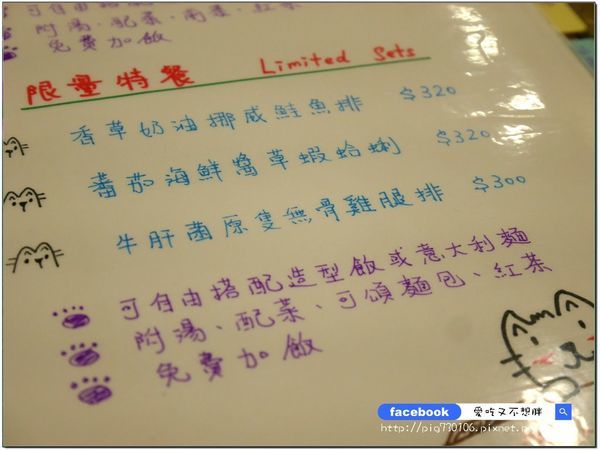 可自由搭配
附湯、配菜、雨茶、紅茶
免費加飯
限量特餐 Limited Sets
香草奶油挪威鮭魚排 $320
蕃茄海鮮醬草蝦蛤蜊 $320
牛肝菌原隻無骨雞腿排 $300
可自由搭配造型飯或意大利麵
附湯、配菜、可頌麵包、紅茶
免費加飯
facebook 愛吃又不想胖
http://pig770106.pixnet.